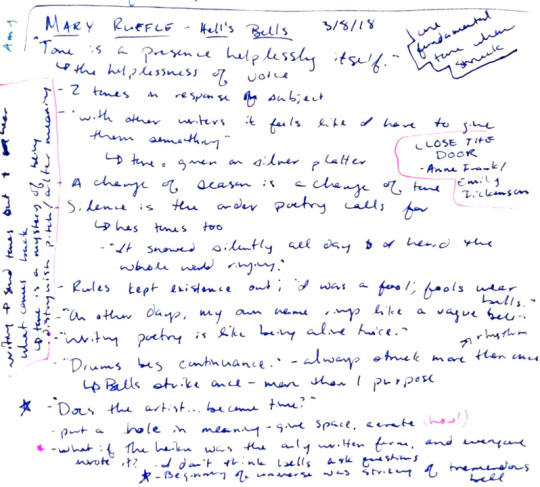 MARY RUEFLE - Hell's Bells 3/8/18
"Tone is a presence helplessly itself."
↳ the helplessness of voice
one fundamental tone when struck
- 2 tones in response to subject
- "with other writers it feels like I have to give
them something"
↳ tone given on silver platter
CLOSE THE
DOOR
- Anne Frank/
Emily
Dickinson
- A change of season is a change of tone
- Silence is the order poetry calls for
↳ has tones too
- "It snowed silently all day & I heard the
whole world ringing."
- Rules kept existence out; "I was a fool; fools wear
bells."
- "On other days, my own name rings like a vague bell."
- "Writing poetry is like being alive twice."
↗ rhythm
- "Drums beg continuance." - always struck more than once
↳ Bells strike once - more than 1 purpose
★ - "Does the artist... become time?"
- put a hole in meaning - give space, aerate (how!)
- what if the haiku was the only written form, and everyone
wrote it? - I don't think bells ask questions
★ - Beginning of universe was striking of tremendous
bell
Amy
writing → send tones out +
what comes back
↳ tone is a mystery of being
distinguish pitch/alter meaning